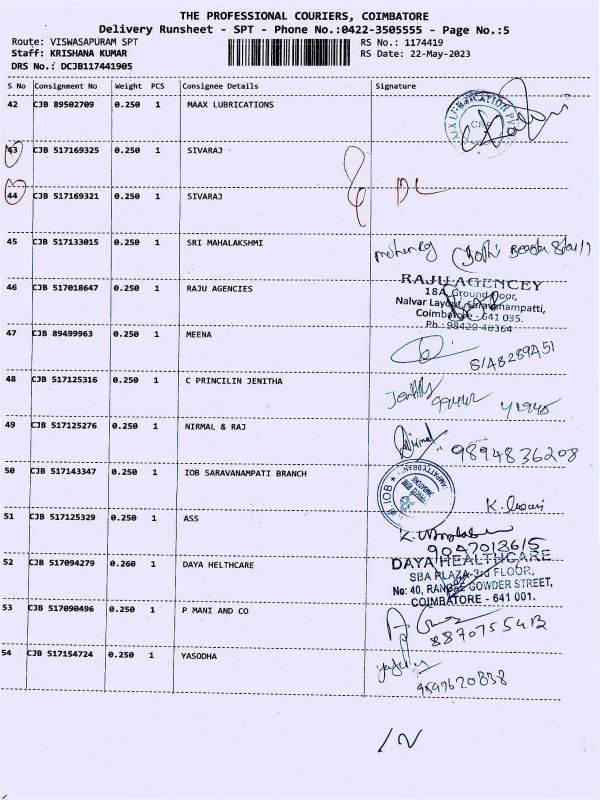 THE PROFESSIONAL COURIERS, COIMBATORE
Delivery Runsheet - SPT - Phone No.:0422-3505555 - Page No.:5
Route: VISWASAPURAM SPT RS No.: 1174419
Staff: KRISHANA KUMAR RS Date: 22-May-2023
DRS No.: DCJB117441905
S No Consignment No Weight PCS Consignee Details Signature
42 CJB 89502709 0.250 1 MAAX LUBRICATIONS
43 CJB 517169325 0.250 1 SIVARAJ
44 CJB 517169321 0.250 1 SIVARAJ DL
45 CJB 517133015 0.250 1 SRI MAHALAKSHMI
46 CJB 517018647 0.250 1 RAJU AGENCIES
RAJU AGENCEY
18A, Ground Floor,
Nalvar Layout, Saravanampatti,
Coimbatore - 641 035.
Ph : 98420 48364
47 CJB 89499963 0.250 1 MEENA
48 CJB 517125316 0.250 1 C PRINCILIN JENITHA
49 CJB 517125276 0.250 1 NIRMAL & RAJ
Nirmal 9894836208
50 CJB 517143347 0.250 1 IOB SARAVANAMPATI BRANCH
IOB
51 CJB 517125329 0.250 1 ASS
9047013615
52 CJB 517094279 0.260 1 DAYA HELTHCARE
DAYA HEALTHCARE
SBA PLAZA-3rd FLOOR,
No: 40, RANGAE GOWDER STREET,
COIMBATORE - 641 001.
53 CJB 517090496 0.250 1 P MANI AND CO
54 CJB 517154724 0.250 1 YASODHA